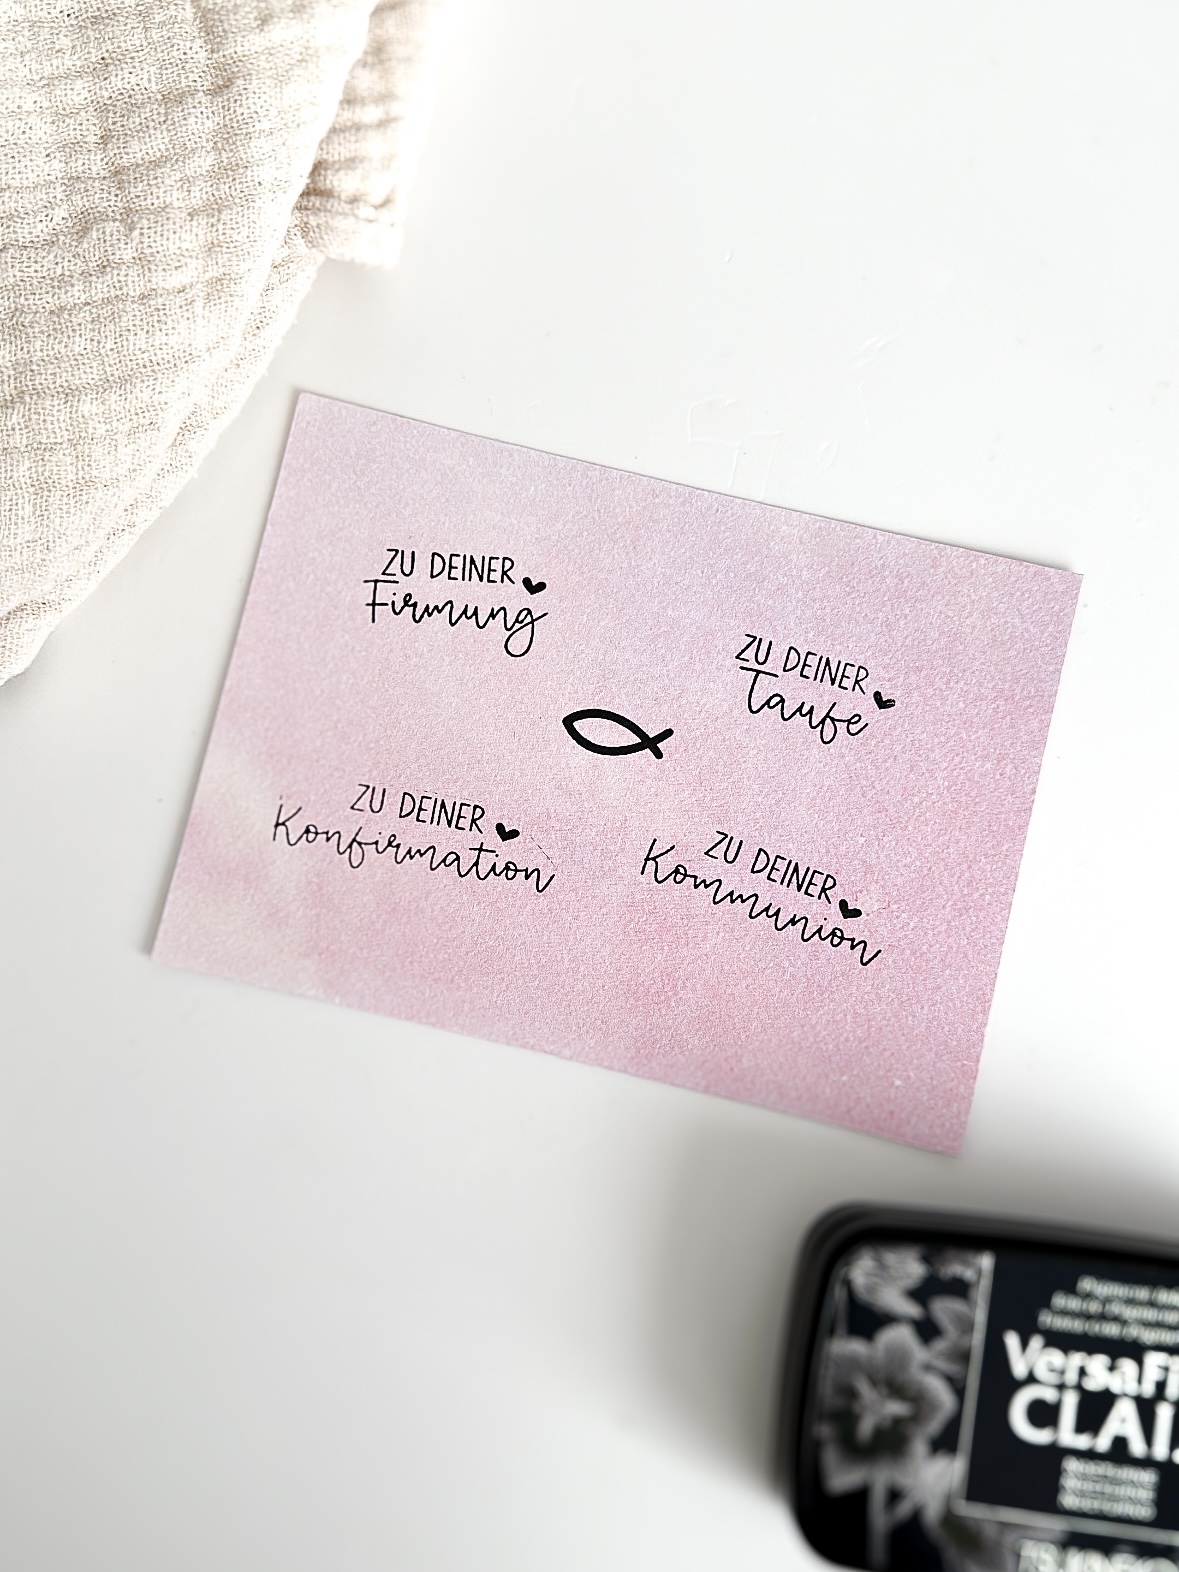 ZU DEINER
Firmung
ZU DEINER
Taufe
ZU DEINER
Konfirmation
ZU DEINER
Kommunion
CLAI